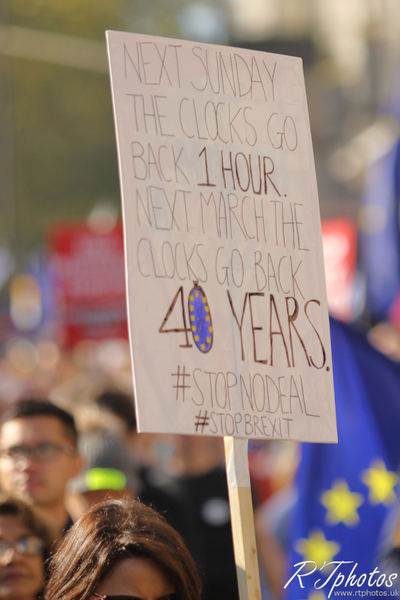 NEXT SUNDAY
THE CLOCKS GO
BACK 1 HOUR.
NEXT MARCH THE
CLOCKS GO BACK
40 YEARS.
#STOPNODEAL
#STOPBREXIT
R'Tphotos
www.rtphotos.uk